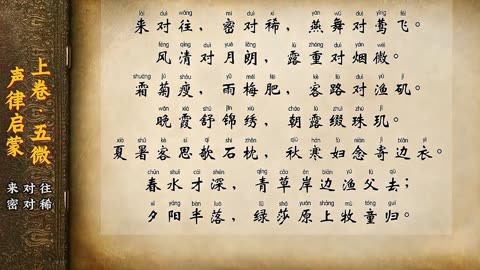 上卷 五微
声律启蒙
来对往
密对稀
lái duì wǎng mì duì xī yàn wǔ duì yīng fēi
来对往，密对稀，燕舞对莺飞。
fēng qīng duì yuè lǎng lù zhòng duì yān wēi
风清对月朗，露重对烟微。
shuāng jú shòu yǔ méi féi kè lù duì yú jī
霜菊瘦，雨梅肥，客路对渔矶。
wǎn xiá shū jǐn xiù zhāo lù zhuì zhū jī
晚霞舒锦绣，朝露缀珠玑。
xià shǔ kè sī qī shí zhěn qiū hán fù niàn jì biān yī
夏暑客思欹石枕，秋寒妇念寄边衣。
chūn shuǐ cái shēn qīng cǎo àn biān yú fù qù
春水才深，青草岸边渔父去；
xī yáng bàn luò lǜ suō yuán shàng mù tóng guī
夕阳半落，绿莎原上牧童归。